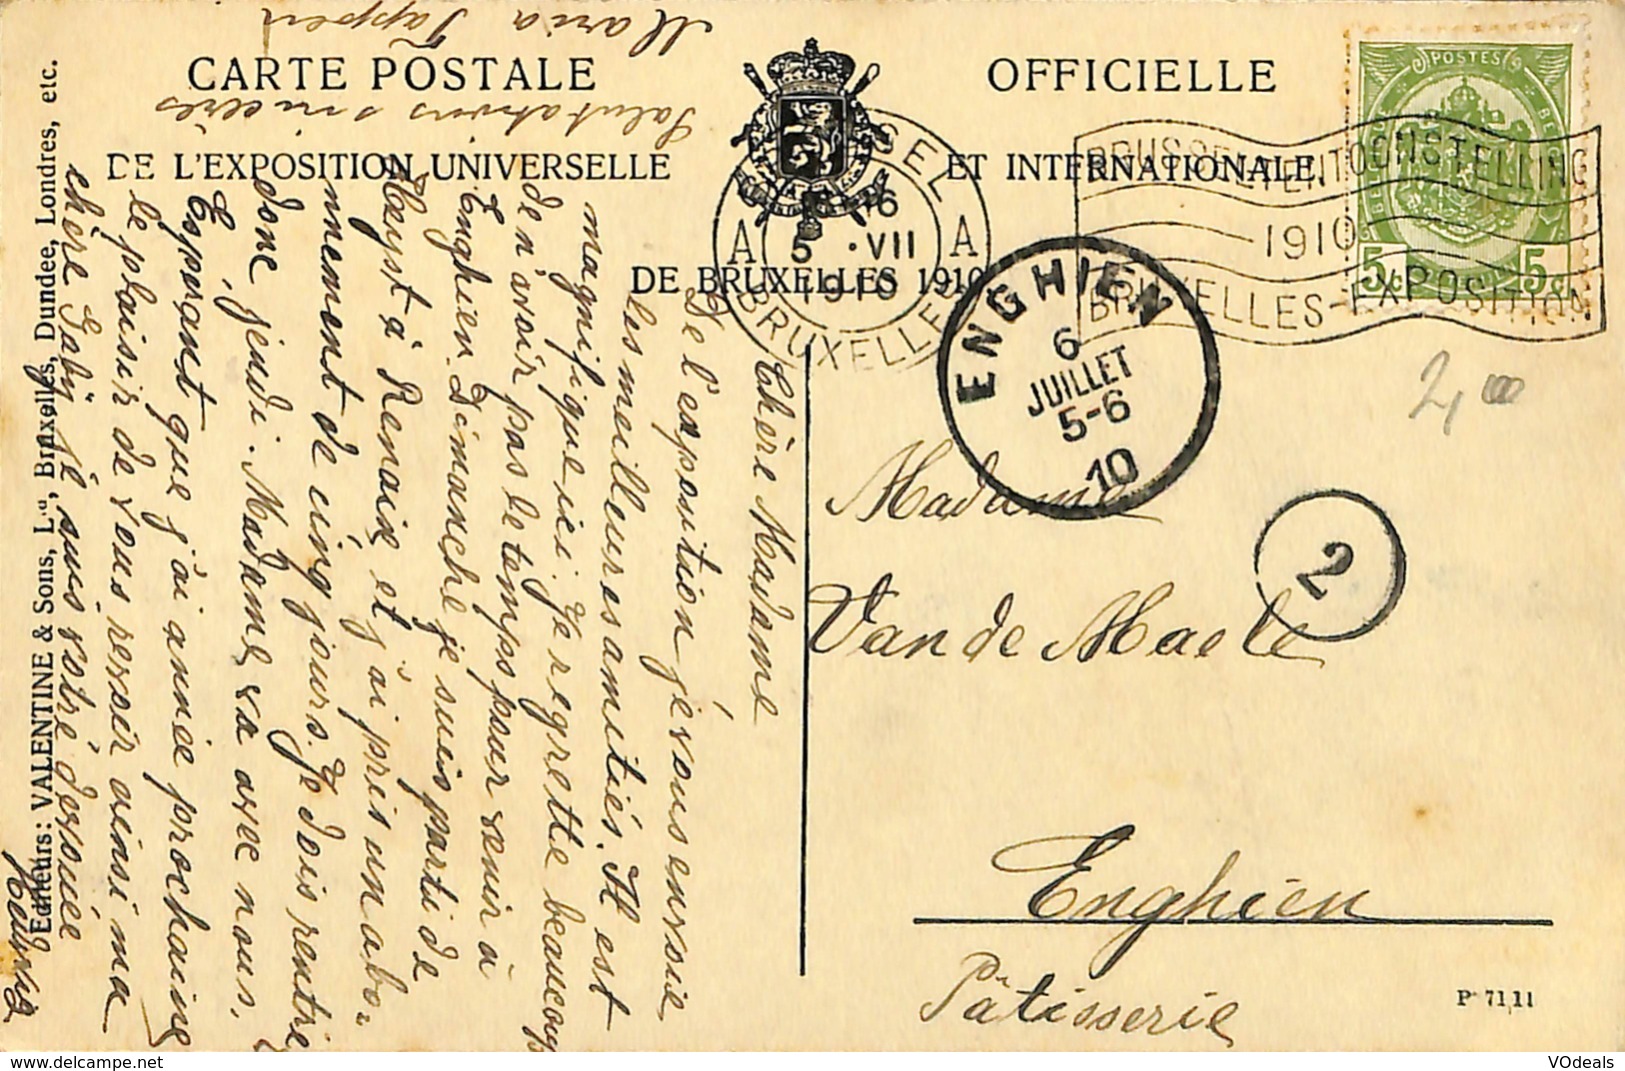 CARTE POSTALE OFFICIELLE
DE L'EXPOSITION UNIVERSELLE ET INTERNATIONALE
DE BRUXELLES 1910
POSTES
5c 5c
BRUSSEL-TENTOONSTELLING
1910
BRUXELLES-EXPOSITION
BRUSSEL
A 5 VII A
1910
BRUXELLES
ENGHIEN
6
JUILLET
5-6
10
2
2,00
Madame
Van de Maele
Enghien
Pâtisserie
P 71,11
Chère Madame
De l'exposition je vous envoie
les meilleures amitiés. Il est
magnifique ici. Je regrette beaucoup
de n'avoir pas le temps pour venir à
Enghien. Dimanche je suis parti de
Heyst à Renaix et j'ai pris un abo-
nnement de cinq jours. Je dois rentre
donc jeudi. Madame va avec nous.
Espérant que j'ai année prochaine
le plaisir de vous revoir ainsi ma
chère Gaby je suis votre dévouée
Salutations sincères
Maria Tappen
Editeurs: VALENTINE & Sons, Ld, Bruxelles, Dundee, Londres, etc.
VOdeals